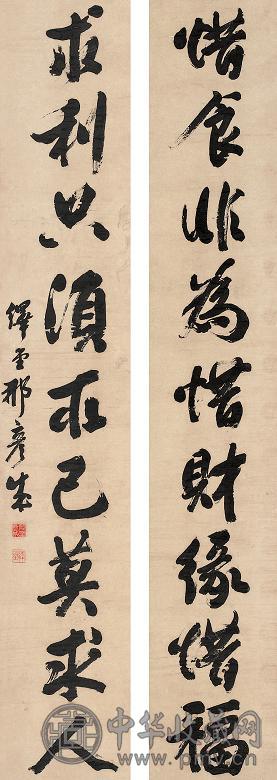 惜食非為惜財緣惜福
求利只須求己莫求人
繹堂那彥成
中华收藏网